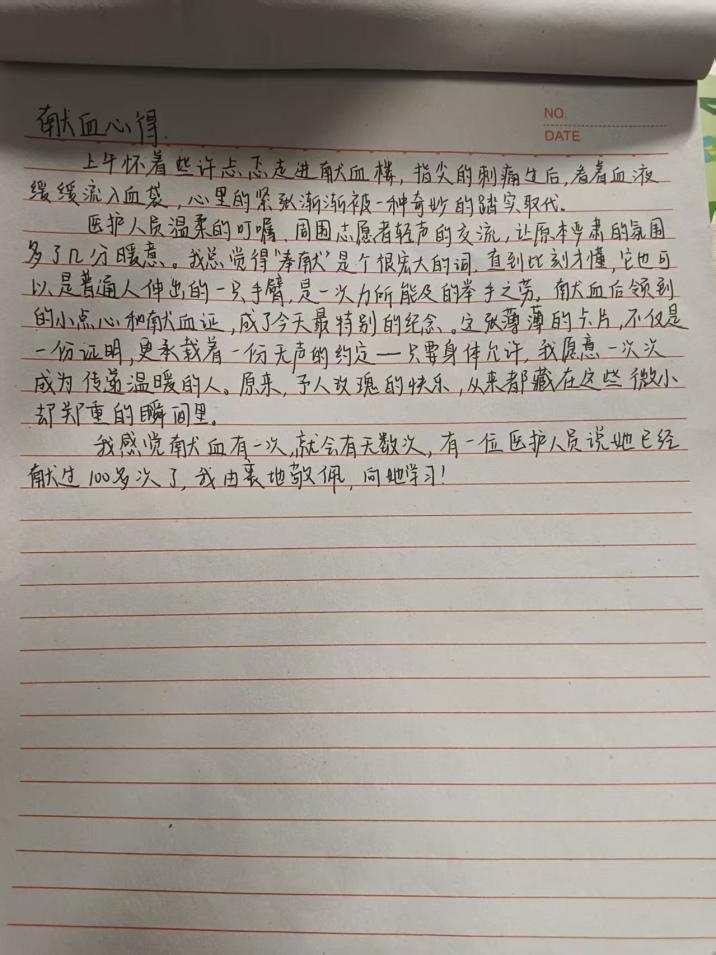 献血心得.
NO.
DATE
上午怀着些许忐忑走进献血楼，指尖的刺痛过后，看着血液
缓缓流入血袋，心里的紧张渐渐被一种奇妙的踏实取代。
医护人员温柔的叮嘱、周围志愿者轻声的交流，让原本严肃的氛围
多了几分暖意。我总觉得“奉献”是个很宏大的词，直到此刻才懂，它也可
以是普通人伸出的一只手臂，是一次力所能及的举手之劳。献血后领到
的小点心和献血证，成了今天最特别的纪念。这张薄薄的卡片，不仅是
一份证明，更承载着一份无声的约定——只要身体允许，我愿意一次次
成为传递温暖的人。原来，予人玫瑰的快乐，从来都藏在这些微小
却郑重的瞬间里。
我感觉献血有一次，就会有无数次，有一位医护人员说她已经
献过100多次了，我由衷地敬佩，向她学习！